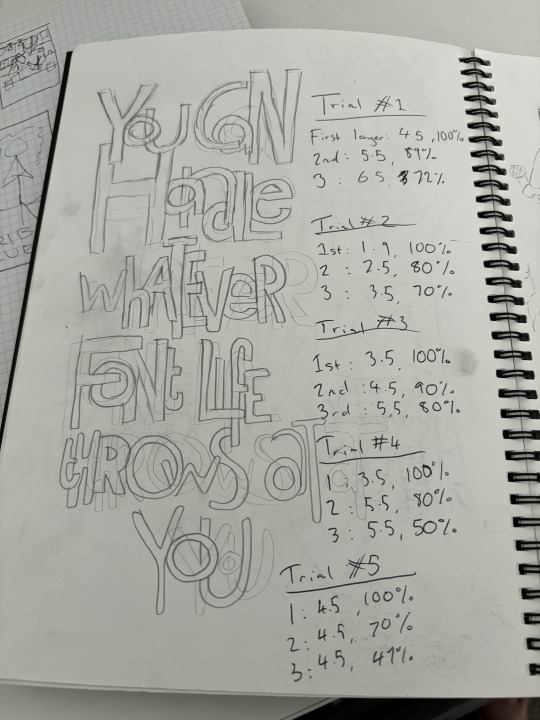 You CaN
Handle
WHATEVeR
FoNt LIFE
tHROWS aT
YOU
Trial #1
First layer: 4.5, 100%
2nd: 5.5, 89%
3 : 6.5, 72%
Trial #2
1st: 1.9, 100%
2 : 2.5, 80%
3 : 3.5, 70%
Trial #3
1st: 3.5, 100%
2nd: 4.5, 90%
3rd: 5.5, 80%
Trial #4
1: 3.5, 100%
2: 5.5, 80%
3: 5.5, 50%
Trial #5
1: 4.5, 100%
2: 4.5, 70%
3: 4.5,